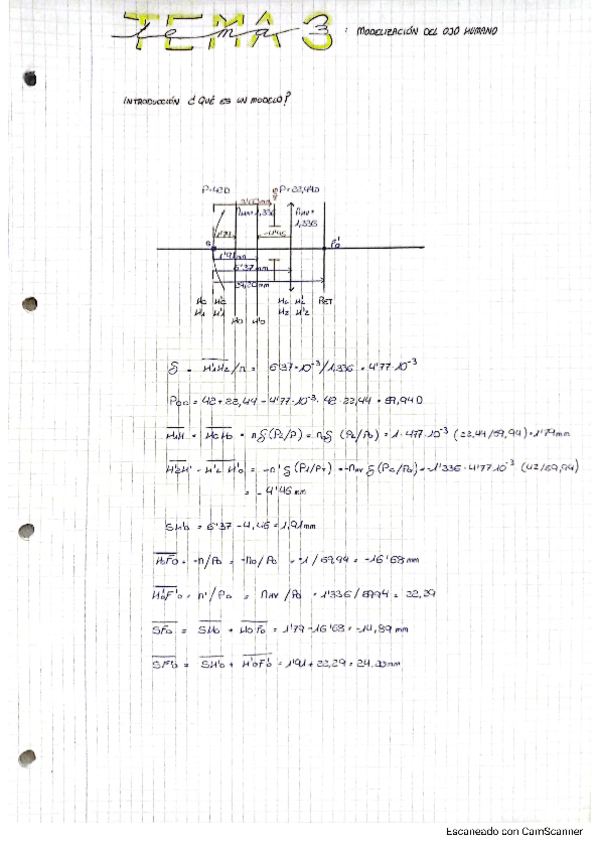 TEMA 3 : MODELIZACIÓN DEL OJO HUMANO
tema
INTRODUCCIÓN ¿QUÉ ES UN MODELO?
P=42D P=22,44D
nHV=1,336
1,336
1'91mm
6'37mm
RET
δ = H'1H2/n = 6'37·10⁻³/1,336 = 4'77·10⁻³
POC = 42+22,44-4'77·10⁻³·42·22,44 = 59,94D
= nδ(P2/P) = = 1·4'77·10⁻³ (22,44/59,94)=1'79mm
= -n'δ(P1/PT) = -nHVδ(PC/PO) = -1'336·4'77·10⁻³ (42/59,94)
= -4'46mm
SH'O = 6'37-4,46=1,91mm
HOFO = -n/PO = -nO/PO = -1/59,94 = -16'68mm
H'OF'O = n'/PO = nHV/PO = 1'336/59,94 = 22,29
SFO = SHO + HOFO = 1'79-16'68=-14,89mm
SF'O = SH'O + H'OF'O = 1'91+22,29=24.20mm
Escaneado con CamScanner